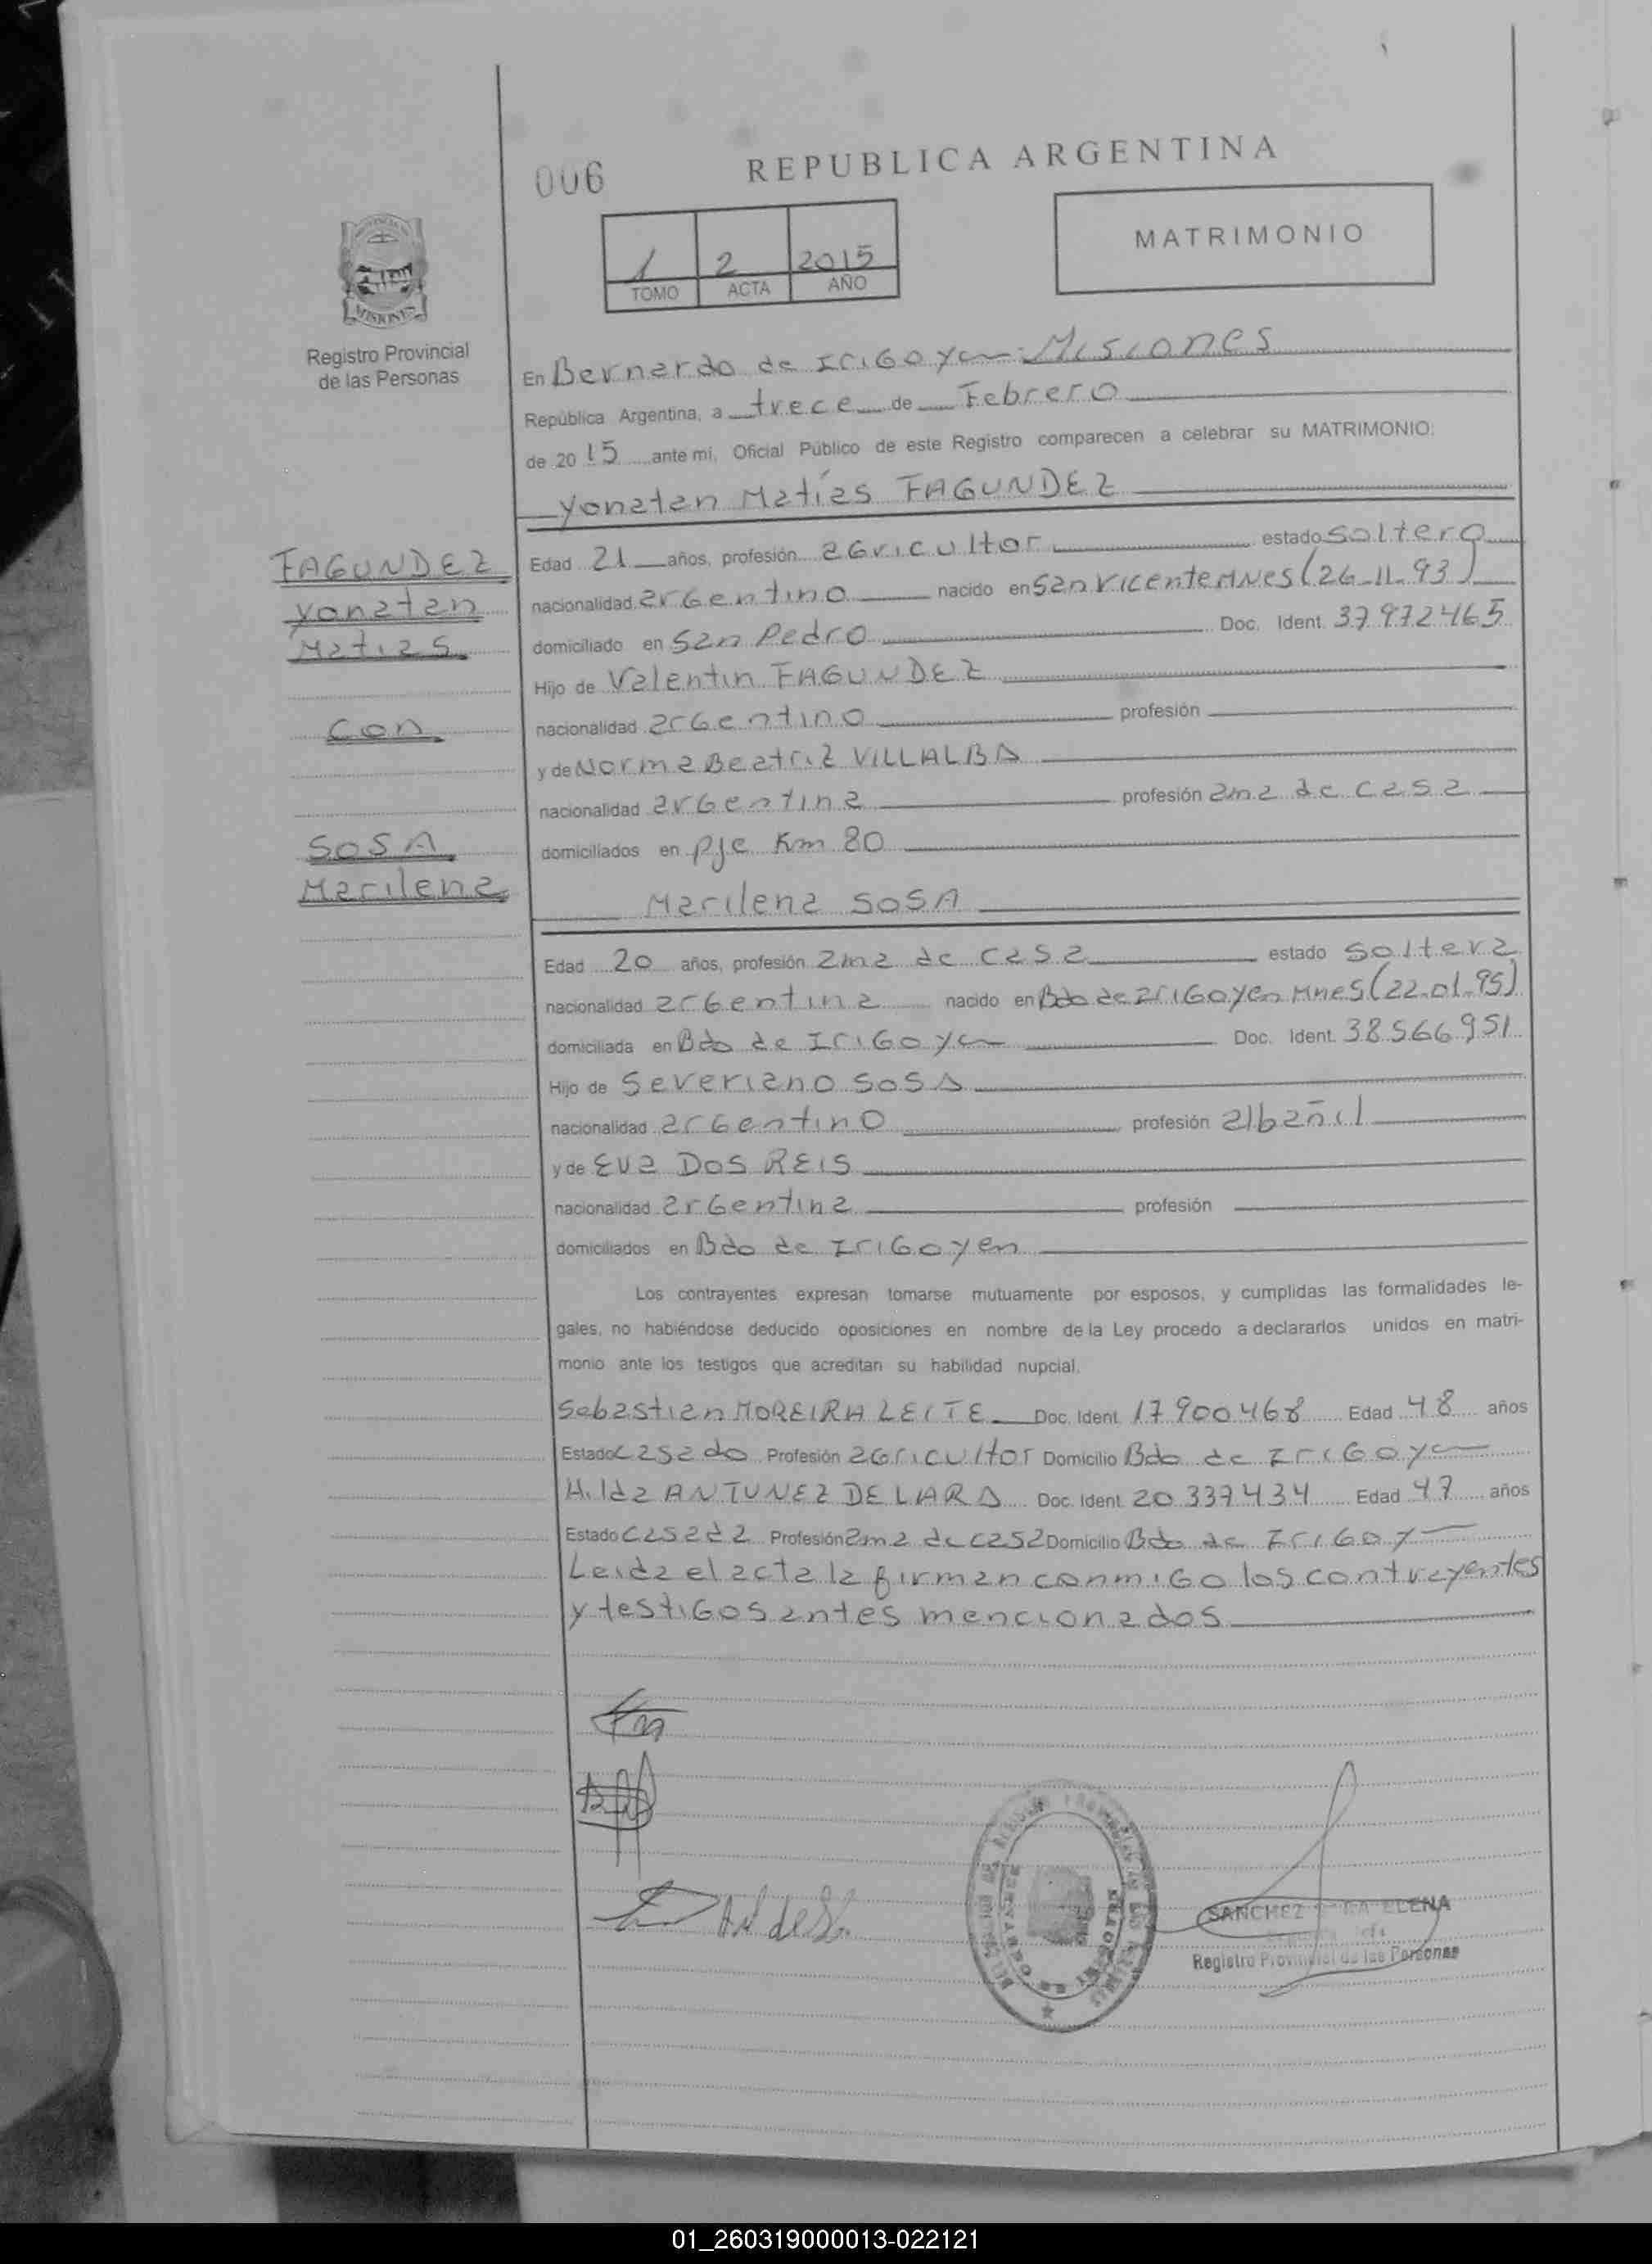 REPUBLICA ARGENTINA
006
1 2 2015
TOMO ACTA AÑO
MATRIMONIO
MISIONES
Registro Provincial
de las Personas
En Bernardo de Irigoyen - Misiones
República Argentina, a trece de Febrero
de 2015 ante mi, Oficial Público de este Registro comparecen a celebrar su MATRIMONIO:
Yonatan Matías FAGUNDEZ
FAGUNDEZ
Yonatan
Matias
con
SOSA
Marilena
Edad 21 años, profesión agricultor estado soltero
nacionalidad argentino nacido en San Vicente Mnes (26-11-93)
domiciliado en San Pedro Doc. Ident. 37972465
Hijo de Valentin FAGUNDEZ
nacionalidad argentino profesión
y de Norma Beatriz VILLALBA
nacionalidad argentina profesión ama de casa
domiciliados en pje Km 80
Marilena SOSA
Edad 20 años, profesión ama de casa estado soltera
nacionalidad argentina nacido en Bdo de Irigoyen Mnes (22-01-95)
domiciliada en Bdo de Irigoyen Doc. Ident. 38.566.951
Hijo de Severiano SOSA
nacionalidad argentino profesión albañil
y de Eva DOS REIS
nacionalidad argentina profesión
domiciliados en Bdo de Irigoyen
Los contrayentes expresan tomarse mutuamente por esposos, y cumplidas las formalidades le-
gales, no habiéndose deducido oposiciones en nombre de la Ley procedo a declararlos unidos en matri-
monio ante los testigos que acreditan su habilidad nupcial.
Sebastian MOREIRA LEITE Doc. Ident. 17900468 Edad 48 años
Estado casado Profesión agricultor Domicilio Bdo de Irigoyen
Hilda ANTUNEZ DE LARA Doc. Ident. 20337434 Edad 47 años
Estado casada Profesión ama de casa Domicilio Bdo de Irigoy
Leida el acta la firman conmigo los contrayentes
y testigos antes mencionados
SANCHEZ ELENA
Registro Provincial de las Personas
01_260319000013-022121